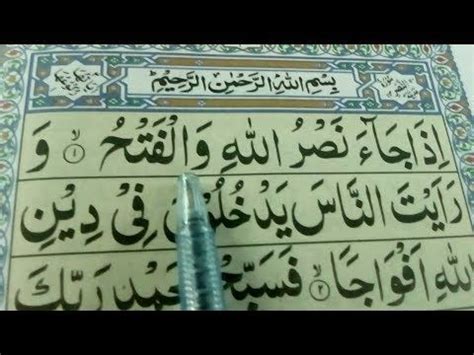 بِسْمِ اللهِ الرَّحْمٰنِ الرَّحِيْمِ
اِذَا جَآءَ نَصْرُ اللهِ وَالْفَتْحُ ۙ﴿۱﴾ وَ
رَاَيْتَ النَّاسَ يَدْخُلُوْنَ فِىْ دِيْنِ
اللهِ اَفْوَاجًا ۙ﴿۲﴾ فَسَبِّحْ بِحَمْدِ رَبِّكَ